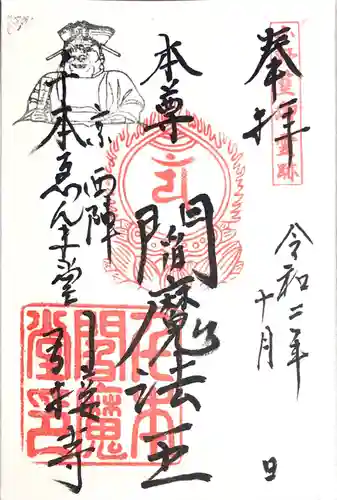 奉拝
令和二年
十月 日
本尊
閻魔法王
京西陣
千本ゑんま堂
引接寺